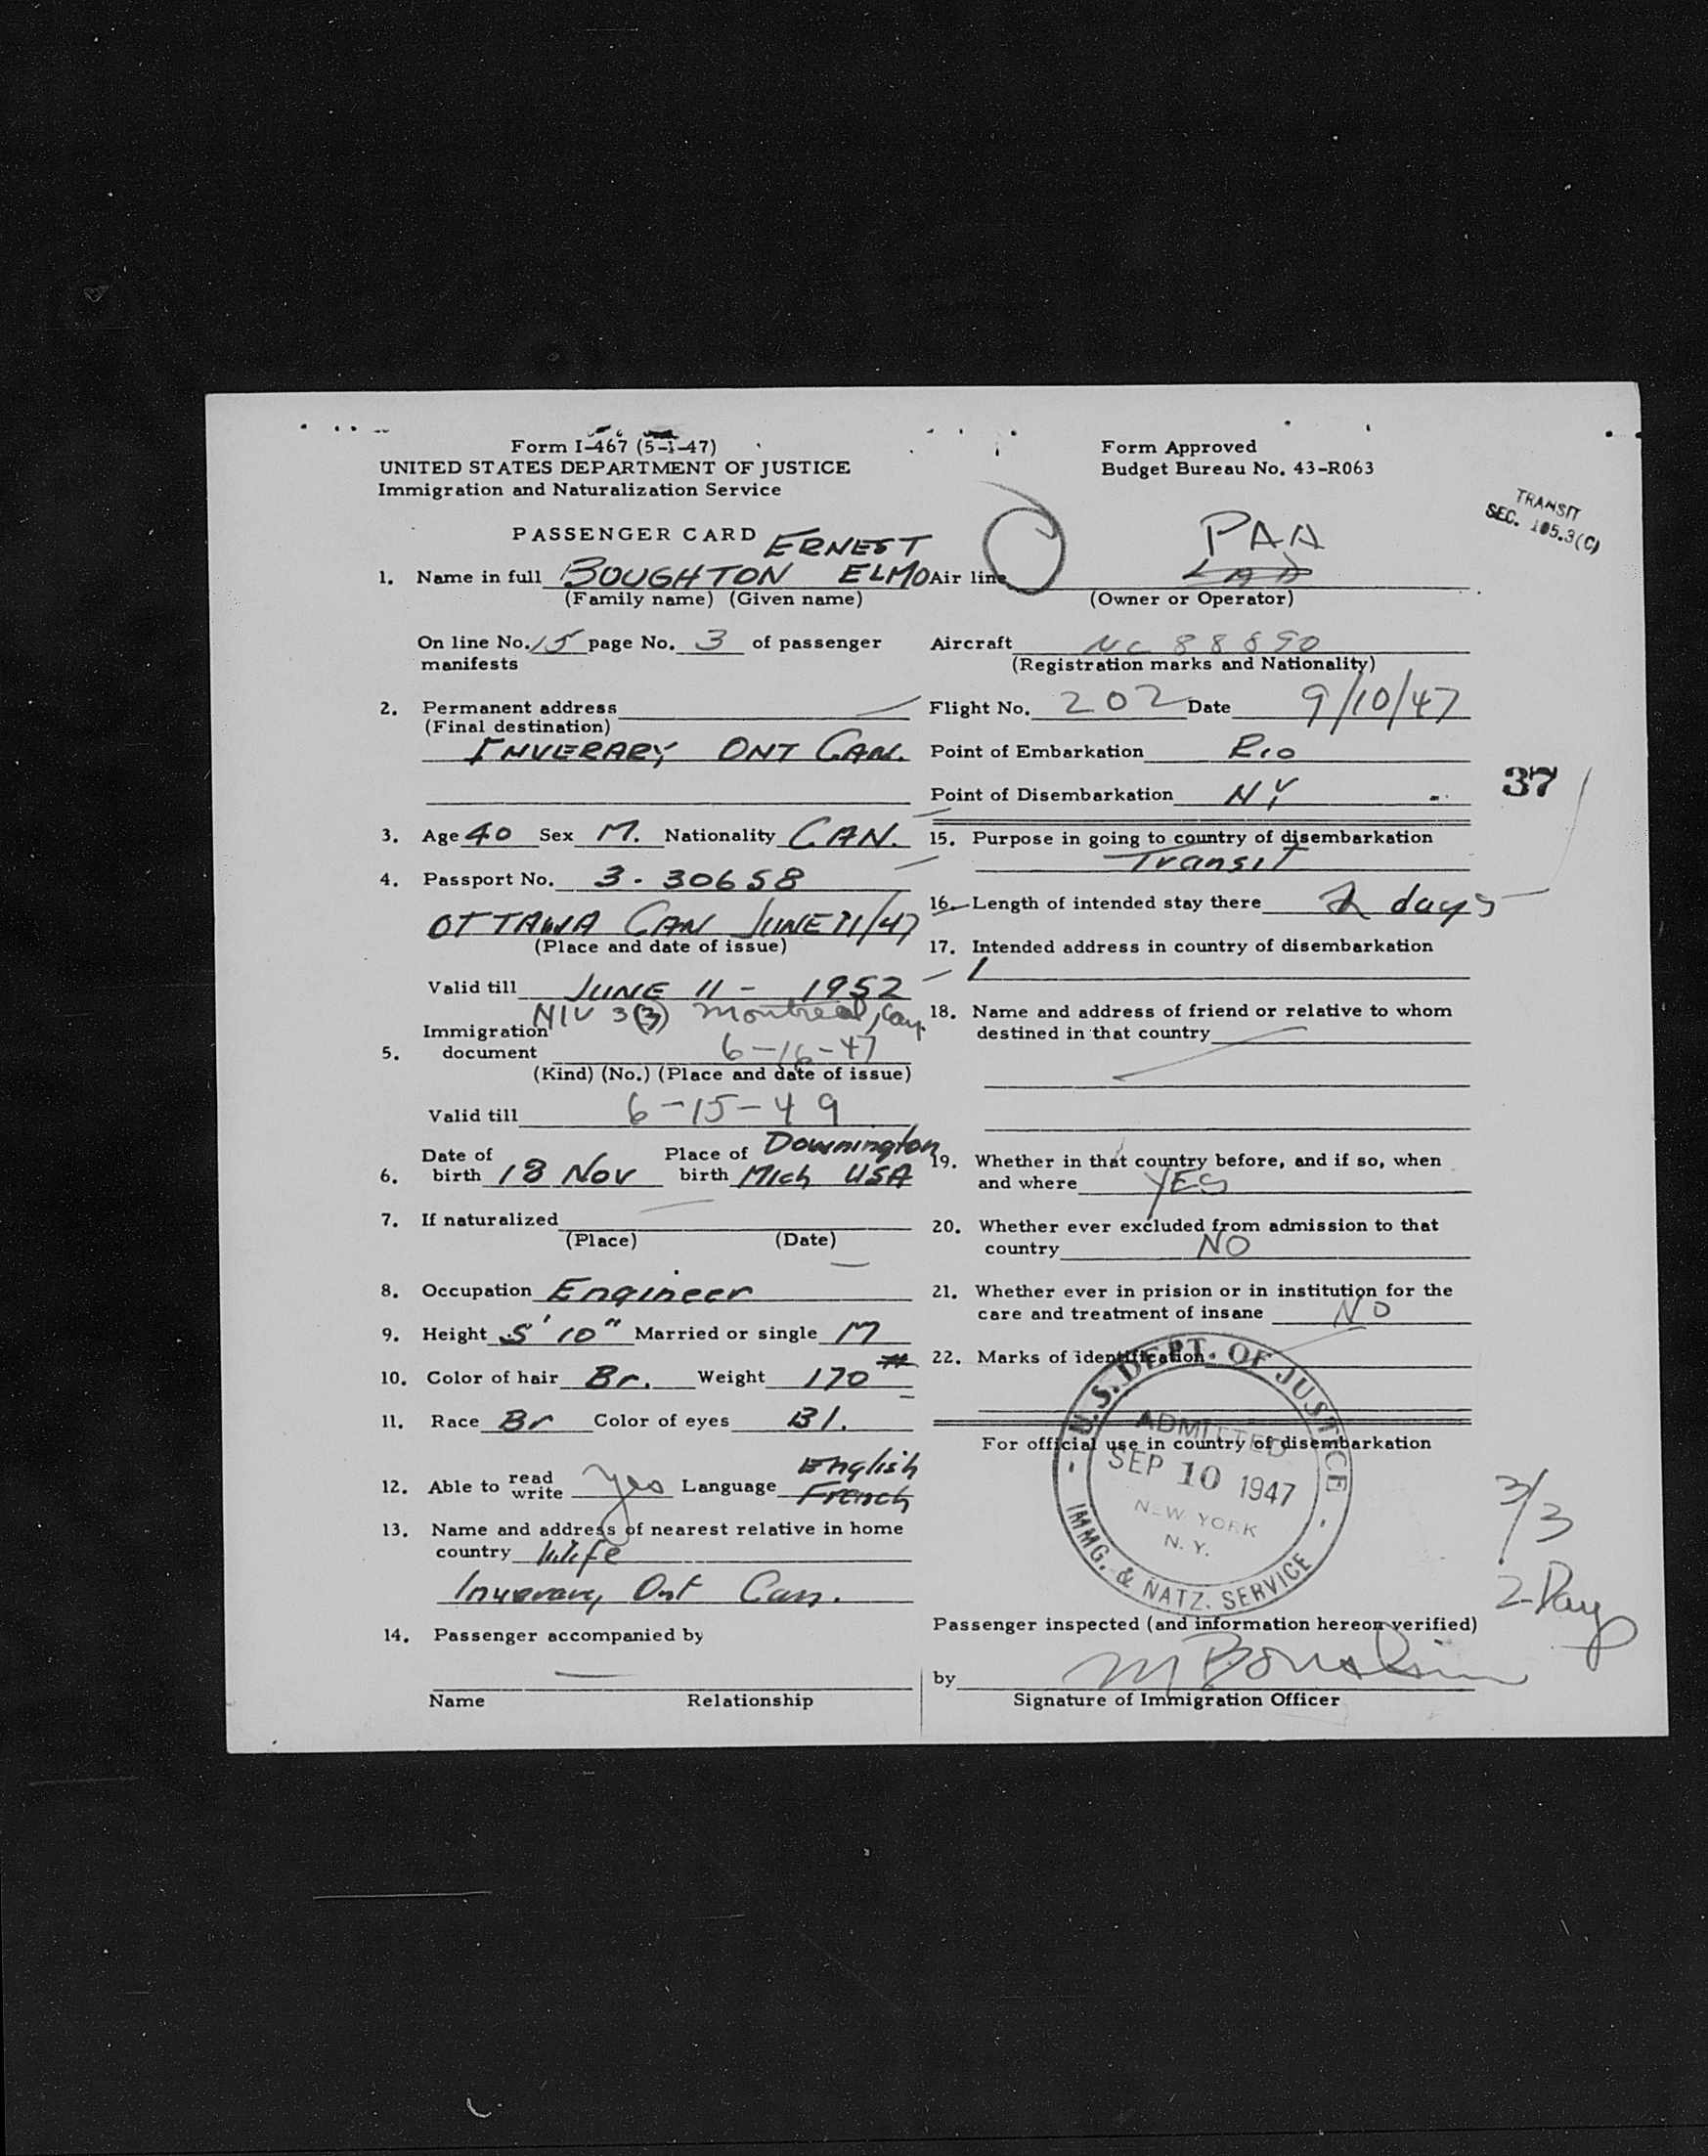 Form I-467 (5-1-47)
UNITED STATES DEPARTMENT OF JUSTICE
Immigration and Naturalization Service
Form Approved
Budget Bureau No. 43-R063
TRANSIT
SEC. 105.3(C)
PASSENGER CARD ERNEST
1. Name in full BOUGHTON ELMO
(Family name) (Given name)
On line No. 15 page No. 3 of passenger
manifests
2. Permanent address
(Final destination)
INVERARY, ONT CAN.
3. Age 40 Sex M. Nationality CAN.
4. Passport No. 3-30658
OTTAWA CAN JUNE 11/47
(Place and date of issue)
Valid till JUNE 11 - 1952
NIV 3(3) Montreal, Can.
Immigration
5. document 6-16-47
(Kind) (No.) (Place and date of issue)
Valid till 6-15-49
Date of Place of Downington
6. birth 18 Nov birth Mich USA
7. If naturalized
(Place) (Date)
8. Occupation Engineer
9. Height 5' 10" Married or single M
10. Color of hair Br. Weight 170 #
11. Race Br Color of eyes Bl.
English
12. Able to read write yes Language French
13. Name and address of nearest relative in home
country Wife
Inverary, Ont Can.
14. Passenger accompanied by
Name Relationship
PAA
Air line
(Owner or Operator)
Aircraft NC 88890
(Registration marks and Nationality)
Flight No. 202 Date 9/10/47
Point of Embarkation Rio
Point of Disembarkation NY
37
15. Purpose in going to country of disembarkation
Transit
16. Length of intended stay there 2 days
17. Intended address in country of disembarkation
18. Name and address of friend or relative to whom
destined in that country
19. Whether in that country before, and if so, when
and where YES
20. Whether ever excluded from admission to that
country NO
21. Whether ever in prision or in institution for the
care and treatment of insane NO
22. Marks of identification
For official use in country of disembarkation
U.S. DEPT. OF JUSTICE
ADMITTED
SEP 10 1947
NEW YORK
N. Y.
IMMG. & NATZ. SERVICE
3/3
2 Days
Passenger inspected (and information hereon verified)
by
Signature of Immigration Officer